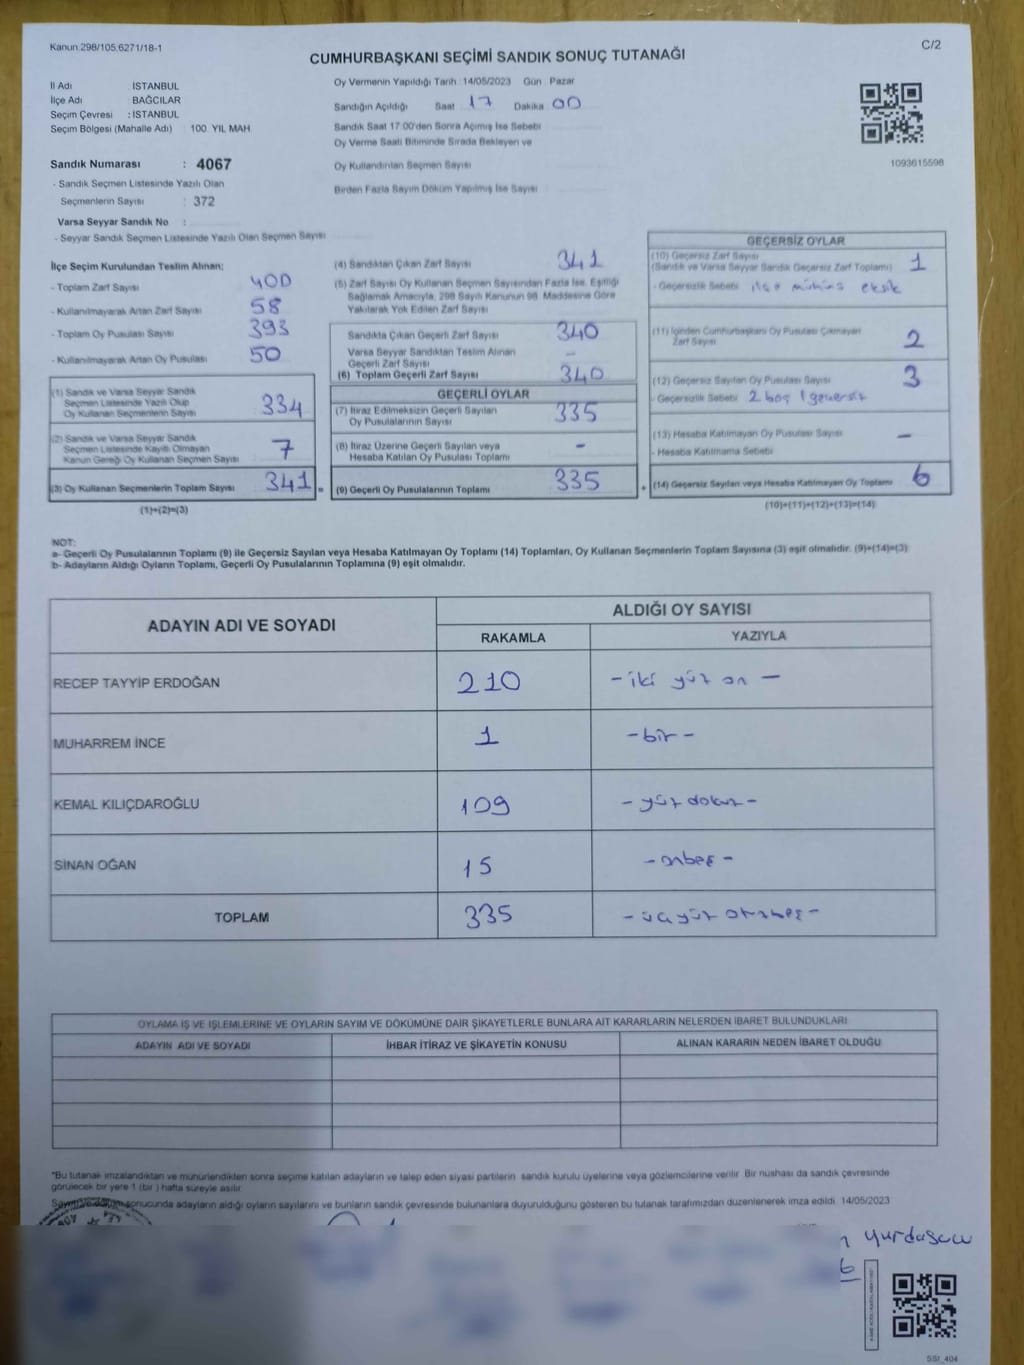 Kanun.298/105.6271/18-1
C/2
CUMHURBAŞKANI SEÇİMİ SANDIK SONUÇ TUTANAĞI
İl Adı : İSTANBUL
İlçe Adı : BAĞCILAR
Seçim Çevresi : İSTANBUL
Seçim Bölgesi (Mahalle Adı) : 100. YIL MAH
Sandık Numarası : 4067
- Sandık Seçmen Listesinde Yazılı Olan
Seçmenlerin Sayısı : 372
Varsa Seyyar Sandık No :
- Seyyar Sandık Seçmen Listesinde Yazılı Olan Seçmen Sayısı
Oy Vermenin Yapıldığı Tarih : 14/05/2023 Gün : Pazar
Sandığın Açıldığı Saat 17 Dakika 00
Sandık Saat 17:00'den Sonra Açımış İse Sebebi
Oy Verme Saati Bitiminde Sırada Bekleyen ve
Oy Kullandırılan Seçmen Sayısı
Birden Fazla Sayım Döküm Yapılmış İse Sayısı
1093615598
İlçe Seçim Kurulundan Teslim Alınan;
- Toplam Zarf Sayısı 400
- Kullanılmayarak Artan Zarf Sayısı 58
- Toplam Oy Pusulası Sayısı 393
- Kullanılmayarak Artan Oy Pusulası 50
(1) Sandık ve Varsa Seyyar Sandık
Seçmen Listesinde Yazılı Olup
Oy Kullanan Seçmenlerin Sayısı 334
(2) Sandık ve Varsa Seyyar Sandık
Seçmen Listesinde Kayıtlı Olmayan
Kanun Gereği Oy Kullanan Seçmen Sayısı 7
(3) Oy Kullanan Seçmenlerin Toplam Sayısı 341 =
(1)+(2)=(3)
(4) Sandıktan Çıkan Zarf Sayısı 341
(5) Zarf Sayısı Oy Kullanan Seçmen Sayısından Fazla İse, Eşitliği
Sağlamak Amacıyla, 298 Sayılı Kanunun 98. Maddesine Göre
Yakılarak Yok Edilen Zarf Sayısı
Sandıkta Çıkan Geçerli Zarf Sayısı 340
Varsa Seyyar Sandıktan Teslim Alınan
Geçerli Zarf Sayısı -
(6) Toplam Geçerli Zarf Sayısı 340
GEÇERLİ OYLAR
(7) İtiraz Edilmeksizin Geçerli Sayılan
Oy Pusulalarının Sayısı 335
(8) İtiraz Üzerine Geçerli Sayılan veya
Hesaba Katılan Oy Pusulası Toplamı -
(9) Geçerli Oy Pusulalarının Toplamı 335 +
GEÇERSİZ OYLAR
(10) Geçersiz Zarf Sayısı
(Sandık ve Varsa Seyyar Sandık Geçersiz Zarf Toplamı) 1
- Geçersizlik Sebebi ilçe mührü eksik
(11) İçinden Cumhurbaşkanı Oy Pusulası Çıkmayan
Zarf Sayısı 2
(12) Geçersiz Sayılan Oy Pusulası Sayısı 3
- Geçersizlik Sebebi 2 boş 1 geçersiz
(13) Hesaba Katılmayan Oy Pusulası Sayısı -
- Hesaba Katılmama Sebebi
(14) Geçersiz Sayılan veya Hesaba Katılmayan Oy Toplamı 6
(10)+(11)+(12)+(13)=(14)
NOT:
a- Geçerli Oy Pusulalarının Toplamı (9) ile Geçersiz Sayılan veya Hesaba Katılmayan Oy Toplamı (14) Toplamları, Oy Kullanan Seçmenlerin Toplam Sayısına (3) eşit olmalıdır. (9)+(14)=(3)
b- Adayların Aldığı Oyların Toplamı, Geçerli Oy Pusulalarının Toplamına (9) eşit olmalıdır.
ADAYIN ADI VE SOYADI
ALDIĞI OY SAYISI
RAKAMLA YAZIYLA
RECEP TAYYİP ERDOĞAN 210 - iki yüz on -
MUHARREM İNCE 1 - bir -
KEMAL KILIÇDAROĞLU 109 - yüz dokuz -
SİNAN OĞAN 15 - onbeş -
TOPLAM 335 - üçyüz otuzbeş -
OYLAMA İŞ VE İŞLEMLERİNE VE OYLARIN SAYIM VE DÖKÜMÜNE DAİR ŞİKAYETLERLE BUNLARA AİT KARARLARIN NELERDEN İBARET BULUNDUKLARI
ADAYIN ADI VE SOYADI İHBAR İTİRAZ VE ŞİKAYETİN KONUSU ALINAN KARARIN NEDEN İBARET OLDUĞU
*Bu tutanak imzalandıktan ve mühürlendikten sonra seçime katılan adayların ve talep eden siyasi partilerin sandık kurulu üyelerine veya gözlemcilerine verilir. Bir nüshası da sandık çevresinde
görülecek bir yere 1 (bir) hafta süreyle asılır.
sonucunda adayların aldığı oyların sayılarını ve bunların sandık çevresinde bulunanlara duyurulduğunu gösteren bu tutanak tarafımızdan düzenlenerek imza edildi. 14/05/2023
SSI_404